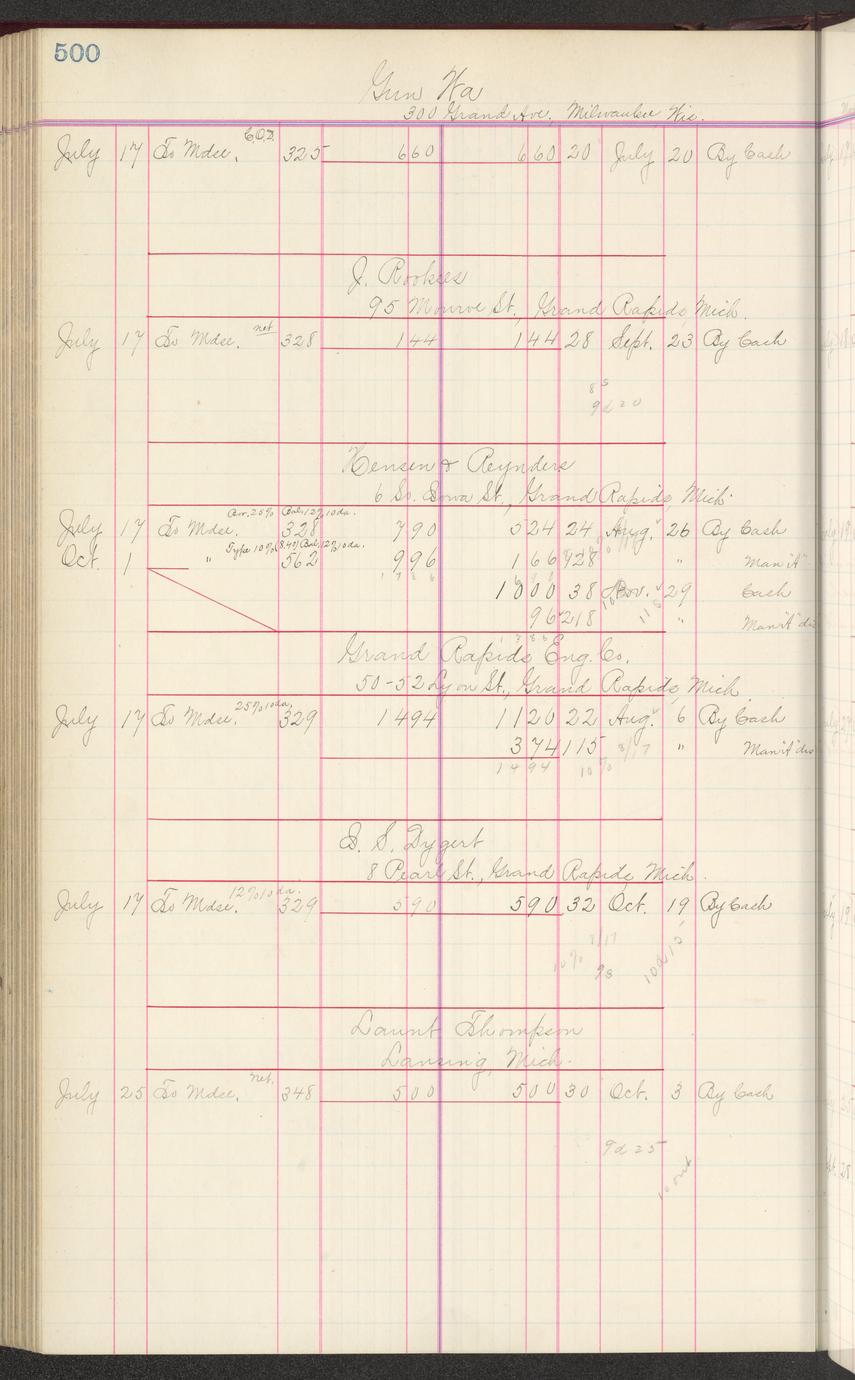 500
Gun Wa
300 Grand Ave., Milwaukee Wis.
C.O.D.
July 17 To Mdse. 325 660 660 20 July 20 By Cash
J. Rookses
95 Monroe St., Grand Rapids, Mich.
net
July 17 To Mdse. 328 144 144 28 Sept. 23 By Cash
85
9d20
Hensen & Reynders
6 So. Iowa St., Grand Rapids, Mich.
Bor. 25% Bal. 12% 10 da.
July 17 To Mdse. 328 790 524 24 Aug. 26 By Cash
Type 10% (8.40) Bal. 12% 10 da.
Oct. 1 " 562 996 166 928 " Man"A"
1000 38 Nov. 29 Cash
96 218 " Man"A" dis
Grand Rapids Eng. Co.
50-52 Lyon St., Grand Rapids, Mich
25% 10 da.
July 17 To Mdse. 329 1494 1120 22 Aug. 6 By Cash
374 115 8/17 " Man"A" dis
1494 10%
D. S. Dygert
8 Pearl St., Grand Rapids, Mich.
12% 10 da.
July 17 To Mdse. 329 590 590 32 Oct. 19 By Cash
8/17
10% 98 10d15
Launt Thompson
Lansing, Mich.
net.
July 25 To Mdse. 348 500 500 30 Oct. 3 By Cash
9d25